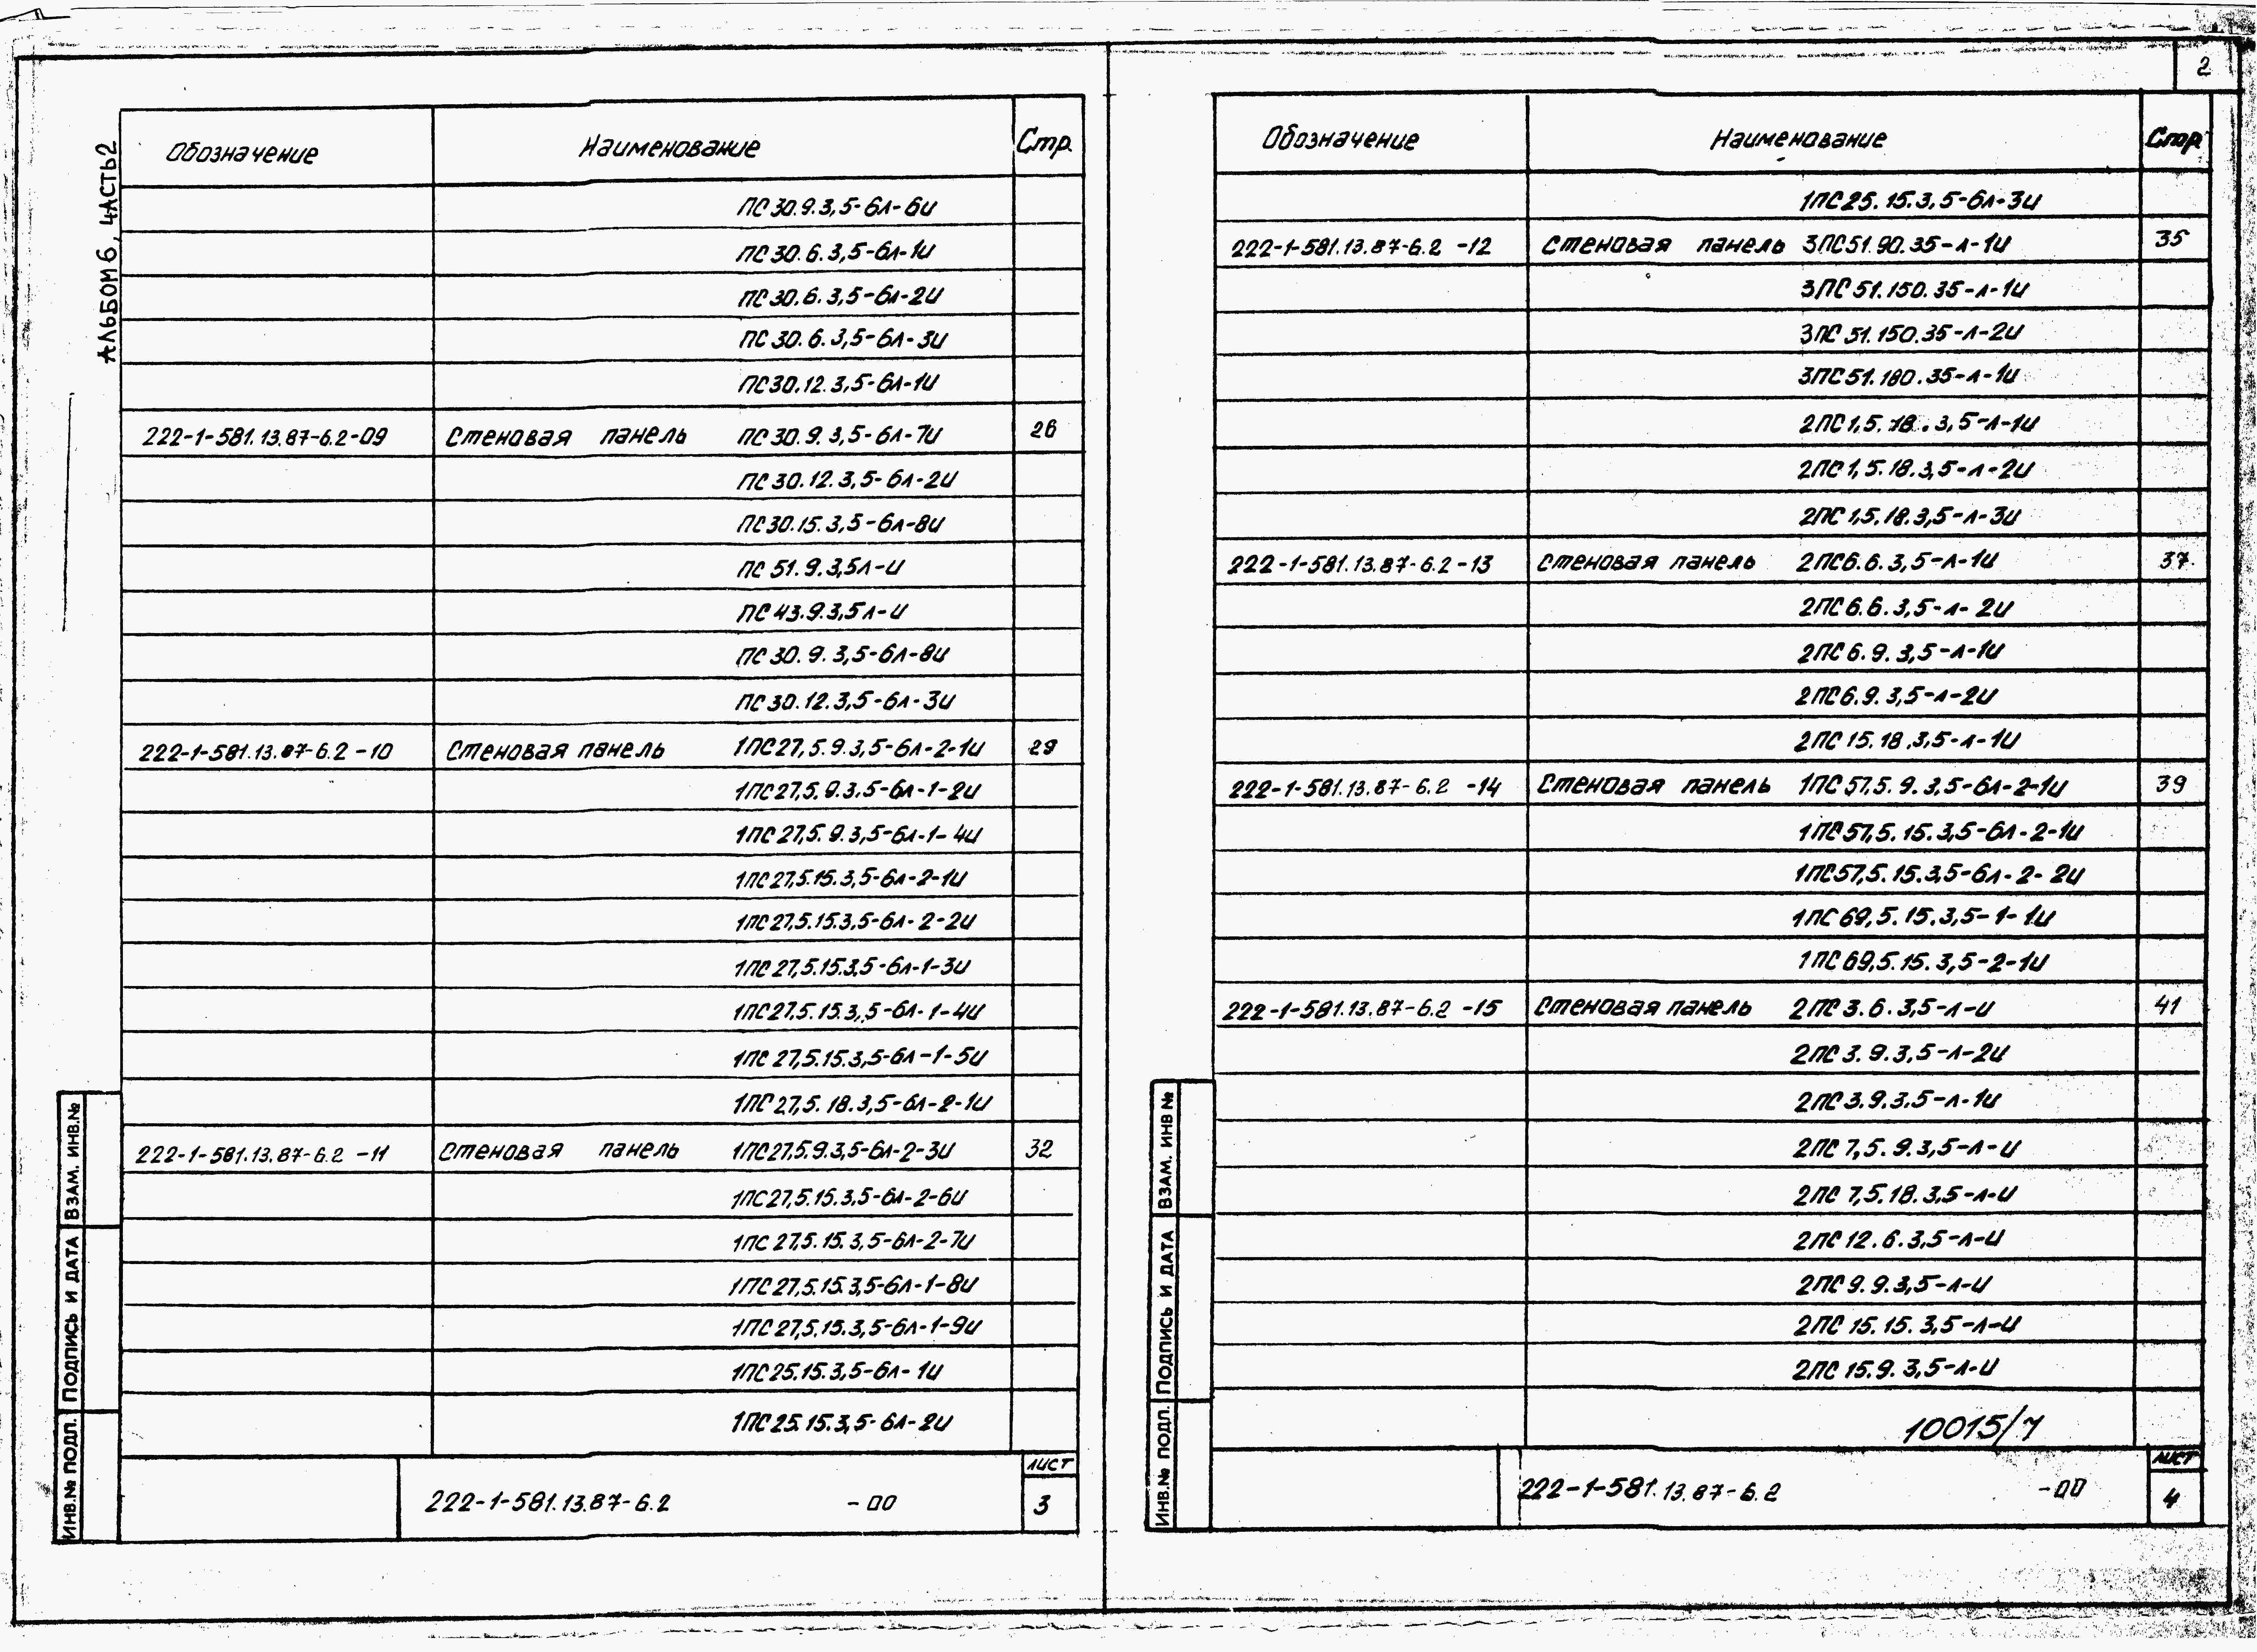 2
АЛЬБОМ 6, ЧАСТЬ 2
Обозначение Наименование Стр.
ПС 30.9.3,5-6л-6и
ПС 30.6.3,5-6л-1и
ПС 30.6.3,5-6л-2и
ПС 30.6.3,5-6л-3и
ПС 30.12.3,5-6л-1и
222-1-581.13.87-6.2-09 Стеновая панель ПС 30.9.3,5-6л-7и 26
ПС 30.12.3,5-6л-2и
ПС 30.15.3,5-6л-8и
ПС 51.9.3,5л-и
ПС 43.9.3,5л-и
ПС 30.9.3,5-6л-8и
ПС 30.12.3,5-6л-3и
222-1-581.13.87-6.2-10 Стеновая панель 1ПС 27,5.9.3,5-6л-2-1и 29
1ПС 27,5.9.3,5-6л-1-2и
1ПС 27,5.9.3,5-6л-1-4и
1ПС 27,5.15.3,5-6л-2-1и
1ПС 27,5.15.3,5-6л-2-2и
1ПС 27,5.15.3,5-6л-1-3и
1ПС 27,5.15.3,5-6л-1-4и
1ПС 27,5.15.3,5-6л-1-5и
1ПС 27,5.18.3,5-6л-2-1и
222-1-581.13.87-6.2-11 Стеновая панель 1ПС 27,5.9.3,5-6л-2-3и 32
1ПС 27,5.15.3,5-6л-2-6и
1ПС 27,5.15.3,5-6л-2-7и
1ПС 27,5.15.3,5-6л-1-8и
1ПС 27,5.15.3,5-6л-1-9и
1ПС 25.15.3,5-6л-1и
1ПС 25.15.3,5-6л-2и
222-1-581.13.87-6.2 -00
ЛИСТ
3
ИНВ.№ ПОДЛ. ПОДПИСЬ И ДАТА ВЗАМ. ИНВ.№
Обозначение Наименование Стр
1ПС 25.15.3,5-6л-3и
222-1-581.13.87-6.2 -12 Стеновая панель 3ПС 51.90.35-л-1и 35
3ПС 51.150.35-л-1и
3ПС 51.150.35-л-2и
3ПС 51.180.35-л-1и
2ПС 1,5.18.3,5-л-1и
2ПС 1,5.18.3,5-л-2и
2ПС 1,5.18.3,5-л-3и
222-1-581.13.87-6.2 -13 Стеновая панель 2ПС 6.6.3,5-л-1и 37
2ПС 6.6.3,5-л-2и
2ПС 6.9.3,5-л-1и
2ПС 6.9.3,5-л-2и
2ПС 15.18.3,5-л-1и
222-1-581.13.87-6.2 -14 Стеновая панель 1ПС 57,5.9.3,5-6л-2-1и 39
1ПС 57,5.15.3,5-6л-2-1и
1ПС 57,5.15.3,5-6л-2-2и
1ПС 69,5.15.3,5-1-1и
1ПС 69,5.15.3,5-2-1и
222-1-581.13.87-6.2 -15 Стеновая панель 2ПС 3.6.3,5-л-и 41
2ПС 3.9.3,5-л-2и
2ПС 3.9.3.5-л-1и
2ПС 7,5.9.3,5-л-и
2ПС 7,5.18.3,5-л-и
2ПС 12.6.3,5-л-и
2ПС 9.9.3,5-л-и
2ПС 15.15.3,5-л-и
2ПС 15.9.3,5-л-и
10015/7
222-1-581.13.87-6.2 -00
ЛИСТ
4
ИНВ.№ ПОДЛ. ПОДПИСЬ И ДАТА ВЗАМ. ИНВ №